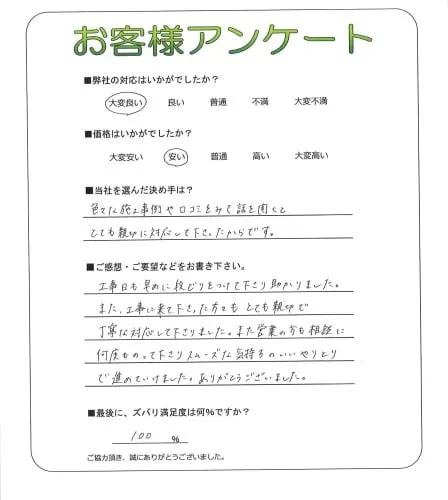 お客様アンケート
■弊社の対応はいかがでしたか?
大変良い 良い 普通 不満 大変不満
■価格はいかがでしたか?
大変安い 安い 普通 高い 大変高い
■当社を選んだ決め手は?
色々な施工事例や口コミをみて話を聞くと
とても親切に対応して下さったからです。
■ご感想・ご要望などをお書き下さい。
工事日も早めに段どりをつけて下さり助かりました。
また、工事に来て下さった方々もとても親切で
丁寧な対応して下さりました。また営業の方も相談に
何度ものって下さりスムーズな気持ちのいいやりとり
で進めていけました。ありがとうございました。
■最後に、ズバリ満足度は何%ですか?
100 %
ご協力頂き、誠にありがとうございました。